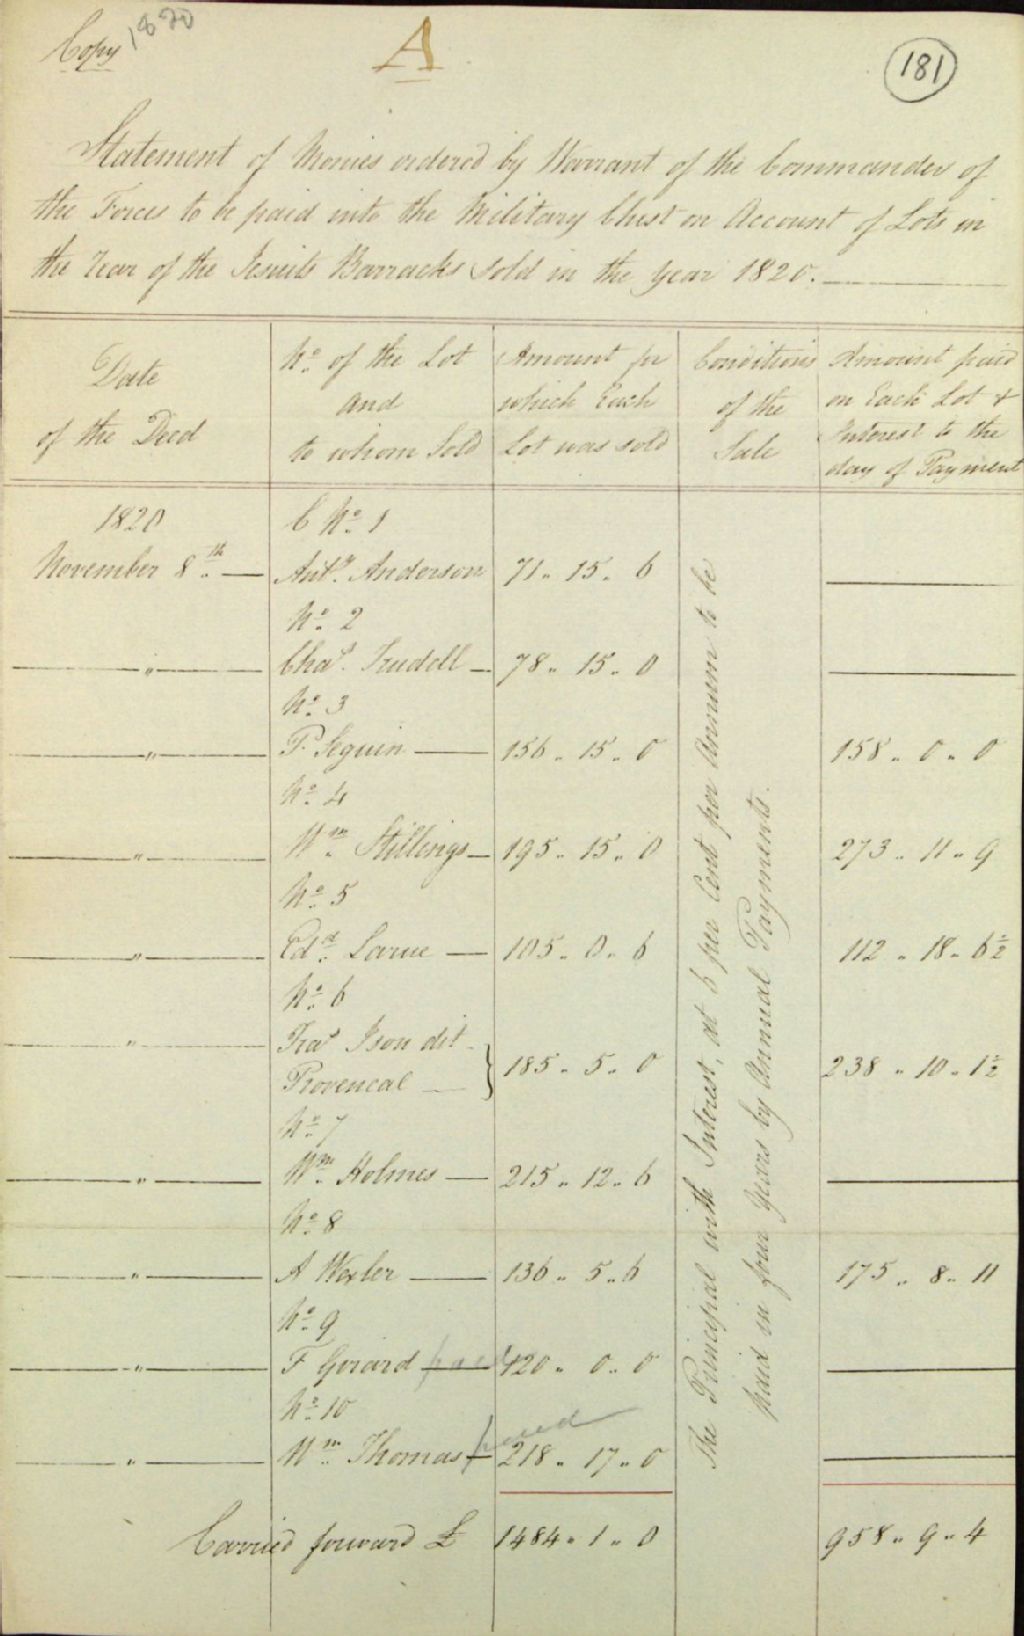 Copy 1820
A
181
Statement of Monies ordered by Warrant of the Commander of
the Forces to be paid into the Military Chest on Account of Lots in
the rear of the Jesuits Barracks sold in the year 1820.
Date
of the Deed
No. of the Lot
and
to whom Sold
Amount for
which Each
Lot was sold
Conditions
of the
Sale
Amount paid
on Each Lot &
Interest to the
day of Payment
1820
C No. 1
November 8.th — Anty. Anderson 71 .. 15 .. 6 —
No. 2
— " — Chas. Trudell — 78 .. 15 .. 0 —
No. 3
— " — P. Seguin — 156 .. 15 .. 0 158 .. 0 .. 0
No. 4
— " — Wm. Stillings — 195 .. 15 .. 0 273 .. 11 .. 9
No. 5
— " — Edd. Larue — 105 .. 0 .. 6 112 .. 18 .. 6½
No. 6
— " — Fras. Ison dit
Provencal — } 185 .. 5 .. 0 238 .. 10 .. 1½
No. 7
— " — Wm. Holmes — 215 .. 12 .. 6 —
No. 8
— " — A Wexler — 136 .. 5 .. 6 175 .. 8 .. 11
No. 9
— " — F Girard — paid 120 .. 0 .. 0 —
No. 10
— " — Wm. Thomas — paid 218 .. 17 .. 0 —
The Principal with Interest, at 6 per Cent per Annum to be
paid in four Years by Annual Payments.
Carried forward £ 1484 .. 1 .. 0 958 .. 9 .. 4